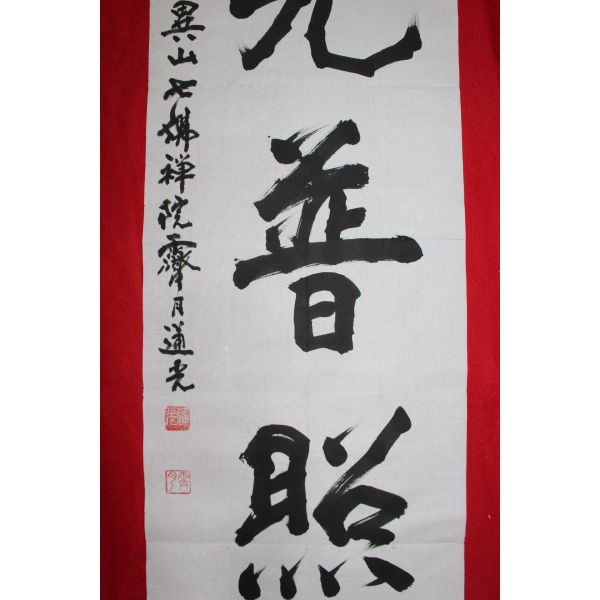 光普照
異山七佛禅院霽月通光